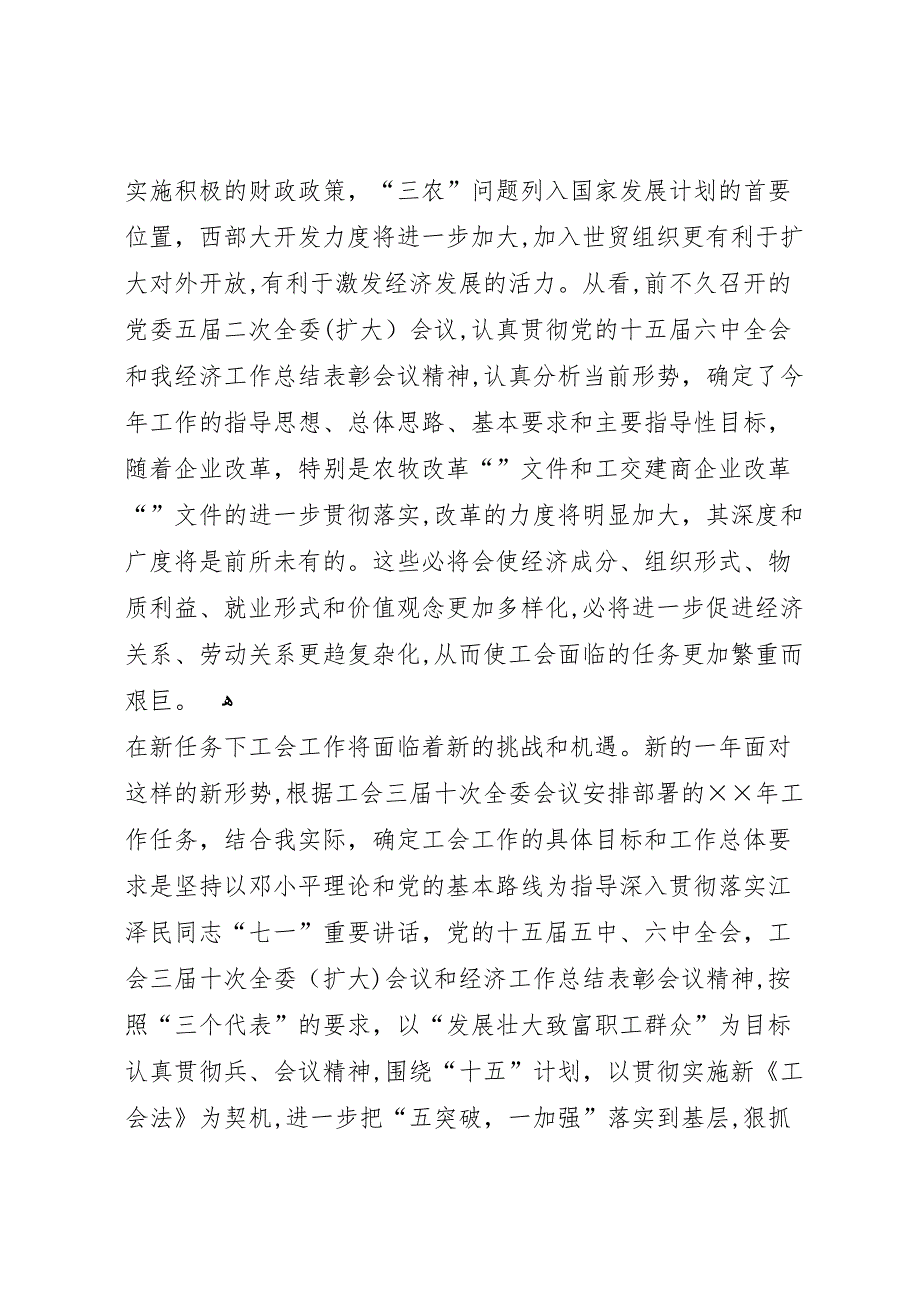 实施积极的财政政策，“三农”问题列入国家发展计划的首要
位置，西部大开发力度将进一步加大,加入世贸组织更有利于扩
大对外开放,有利于激发经济发展的活力。从看,前不久召开的
党委五届二次全委(扩大）会议,认真贯彻党的十五届六中全会
和我经济工作总结表彰会议精神,认真分析当前形势，确定了今
年工作的指导思想、总体思路、基本要求和主要指导性目标，
随着企业改革，特别是农牧改革“”文件和工交建商企业改革
“”文件的进一步贯彻落实,改革的力度将明显加大，其深度和
广度将是前所未有的。这些必将会使经济成分、组织形式、物
质利益、就业形式和价值观念更加多样化,必将进一步促进经济
关系、劳动关系更趋复杂化,从而使工会面临的任务更加繁重而
艰巨。 ﻫ
在新任务下工会工作将面临着新的挑战和机遇。新的一年面对
这样的新形势,根据工会三届十次全委会议安排部署的××年工
作任务，结合我实际，确定工会工作的具体目标和工作总体要
求是坚持以邓小平理论和党的基本路线为指导深入贯彻落实江
泽民同志“七一”重要讲话，党的十五届五中、六中全会，工
会三届十次全委（扩大)会议和经济工作总结表彰会议精神,按
照“三个代表”的要求，以“发展壮大致富职工群众”为目标
认真贯彻兵、会议精神,围绕“十五”计划，以贯彻实施新《工
会法》为契机,进一步把“五突破，一加强”落实到基层,狠抓